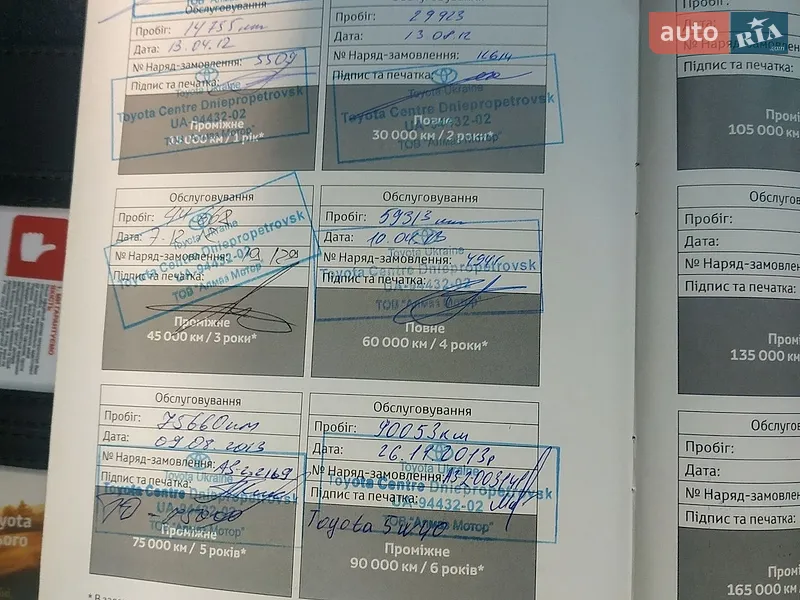 auto RIA.com
Обслуговування
Пробіг: 14755 км
Дата: 13.04.12
№ Наряд-замовлення: 5509
Підпис та печатка:
Toyota Ukraine
Toyota Centre Dniepropetrovsk
UA-94432-02
ТОВ "Алмаз Мотор"
Проміжне
км / 1 рік*
Пробіг: 29913
Дата: 13.08.12
№ Наряд-замовлення: 11614
Підпис та печатка:
Toyota Ukraine
Toyota Centre Dniepropetrovsk
UA-94432-02
ТОВ "Алмаз Мотор"
Повне
30 000 км / 2 роки*
Обслуговування
Пробіг:
Дата: 7.12
№ Наряд-замовлення:
Підпис та печатка:
Toyota Ukraine
Toyota Centre Dniepropetrovsk
UA-94432-02
ТОВ "Алмаз Мотор"
Проміжне
45 000 км / 3 роки*
Обслуговування
Пробіг: 59313 км
Дата: 10.04.13
№ Наряд-замовлення:
Підпис та печатка:
Toyota Ukraine
Toyota Centre Dniepropetrovsk
UA-94432-02
ТОВ "Алмаз Мотор"
Повне
60 000 км / 4 роки*
Обслуговування
Пробіг: 75660 км
Дата: 09.08.2013
№ Наряд-замовлення:
Підпис та печатка:
Toyota Ukraine
Toyota Centre Dniepropetrovsk
UA-94432-02
ТОВ "Алмаз Мотор"
ТО - 75000
Проміжне
75 000 км / 5 років*
Обслуговування
Пробіг: 90053 км
Дата: 26.11.2013р
№ Наряд-замовлення:
Підпис та печатка:
Toyota Ukraine
Toyota Centre Dniepropetrovsk
UA-94432-02
ТОВ "Алмаз Мотор"
Toyota 5w40
Проміжне
90 000 км / 6 років*
Пробіг:
Дата:
№ Наряд-замовлення
Підпис та печатка:
Пром
105 000 км
Обслугов
Пробіг:
Дата:
№ Наряд-замовлення
Підпис та печатка:
Пром
135 000 км
Обслуго
Пробіг:
Дата:
№ Наряд-замовлен
Підпис та печатка:
Пром
165 000 км